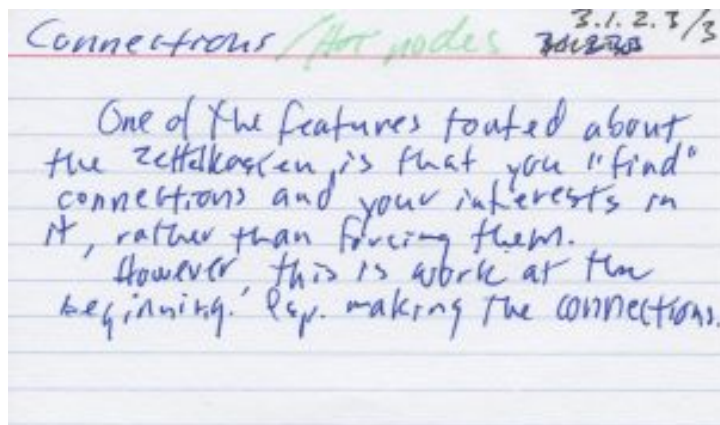 Connections /Hot nodes 3.1.2.3/3
One of the features touted about
the Zettelkasten, is that you "find"
connections and your interests in
it, rather than forcing them.
However, this is work at the
beginning. Esp. making the connections.